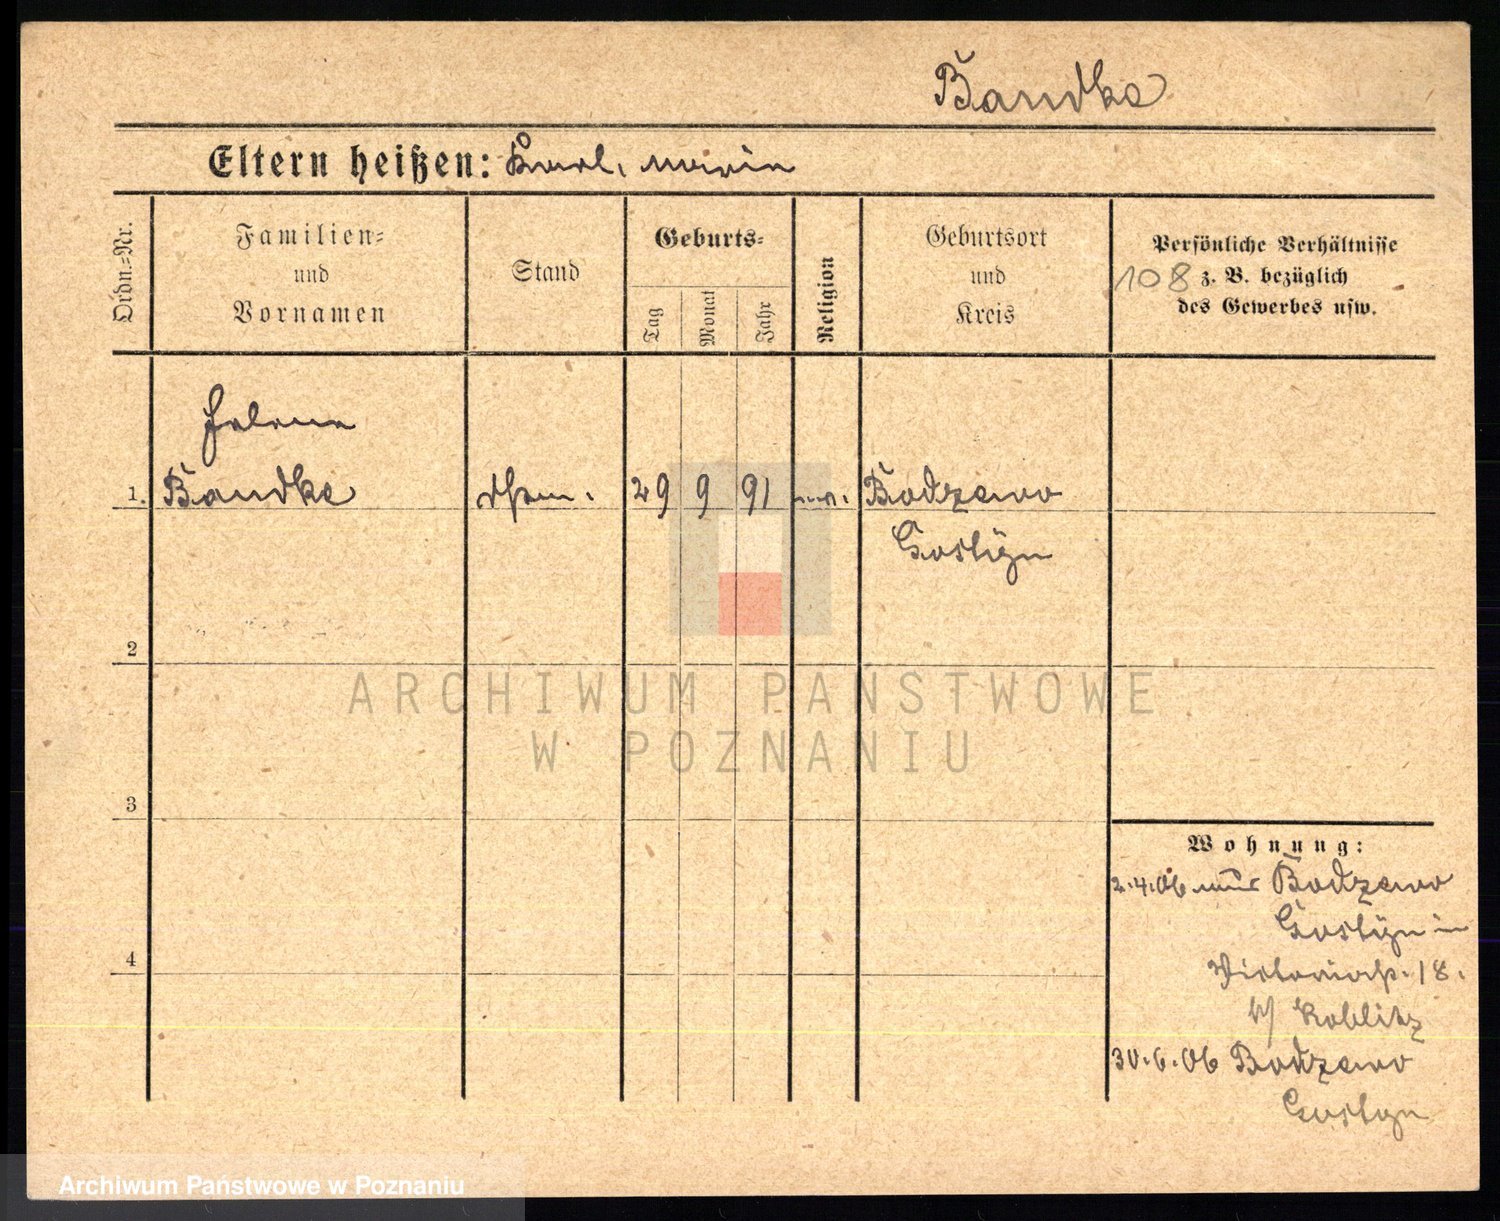 Bandke
Eltern heißen: Karl, Marie
Ordn.-Nr.
Familien-
und
Vornamen
Stand
Geburts-
Tag
Monat
Jahr
Religion
Geburtsort
und
Kreis
Persönliche Verhältnisse
108 z. B. bezüglich
des Gewerbes usw.
Helene
1. Bandke 29 9 91 ev. Bodzewo
Gostyn
2
3
4
Wohnung:
2.4.06 aus Bodzewo
Gostyn in
Victoriastr. 18.
b/ Koblitz
30.6.06 Bodzewo
Gostyn
ARCHIWUM PAŃSTWOWE
W POZNANIU
Archiwum Państwowe w Poznaniu